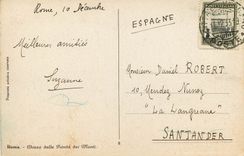 Rome, 10 Décembre
ESPAGNE
Meilleures amitiés
Suzanne
Monsieur Daniel ROBERT
10, Mendez Nunez
"La Langreana"
SANTANDER
Roma. - Chiesa della Trinità dei Monti.